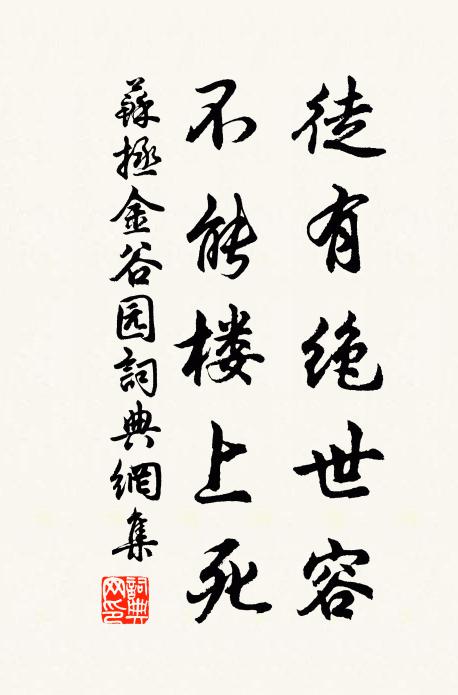 徒有绝世容
不能楼上死
蘇拯金谷园詞典網集
詞典網印